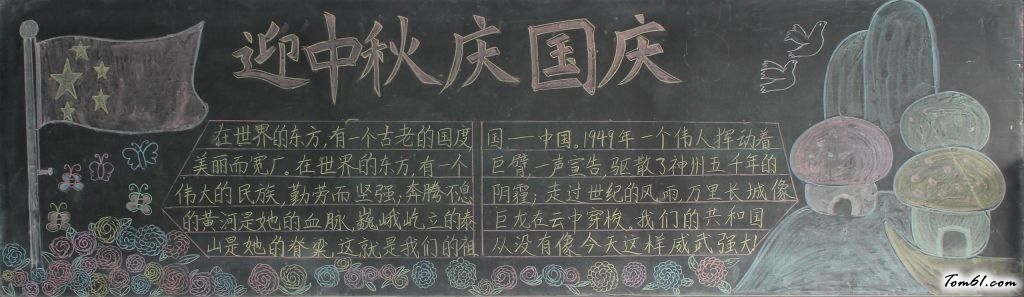 迎中秋庆国庆
在世界的东方,有一个古老的国度
美丽而宽广。在世界的东方,有一个
伟大的民族,勤劳而坚强;奔腾不息
的黄河是她的血脉,巍峨屹立的泰
山是她的脊梁,这就是我们的祖
国——中国。1949年一个伟人挥动着
巨臂,一声宣告,驱散了神州五千年的
阴霾;走过世纪的风雨,万里长城像
巨龙在云中穿梭。我们的共和国
从没有像今天这样威武强大!
Tom61.com